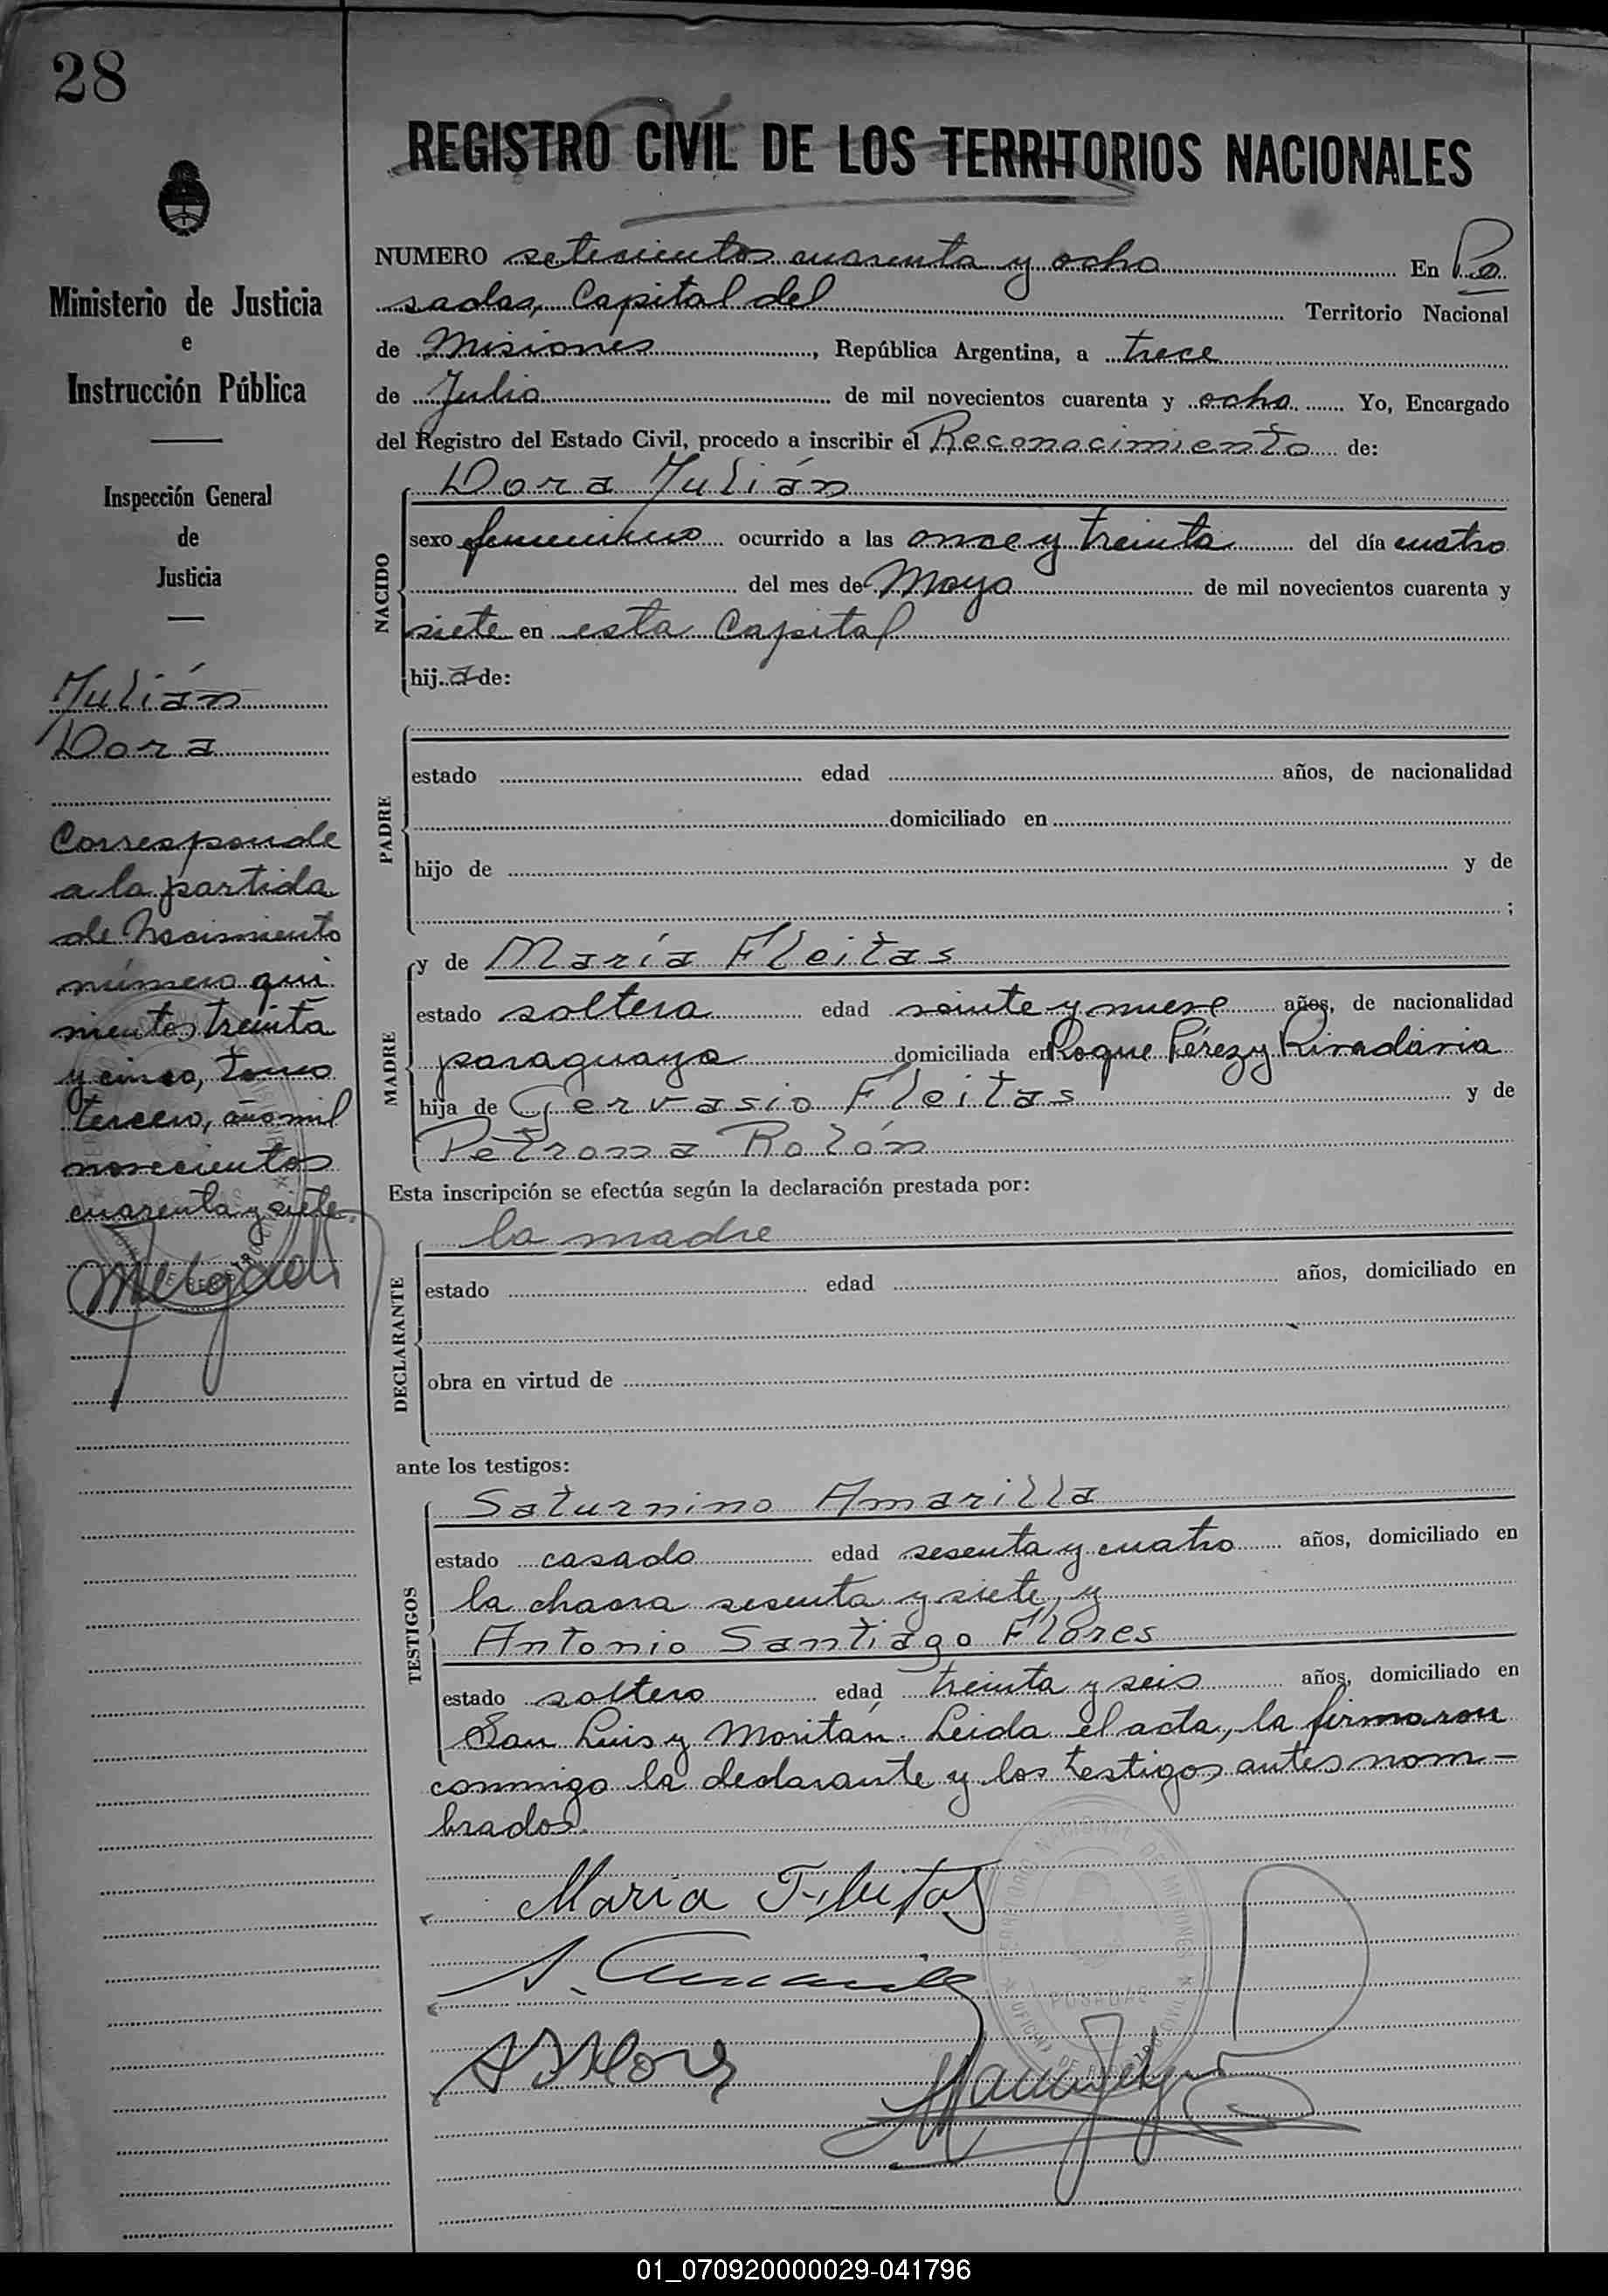 28
REGISTRO CIVIL DE LOS TERRITORIOS NACIONALES
Ministerio de Justicia
e
Instrucción Pública
Inspección General
de
Justicia
Julián
Dora
Corresponde
a la partida
de Nacimiento
número qui
nientos treinta
y cinco, tomo
tercero, año mil
novecientos
cuarenta y siete.
NUMERO setecientos cuarenta y ocho En Po
sadas, Capital del Territorio Nacional
de Misiones, República Argentina, a trece
de Julio de mil novecientos cuarenta y ocho Yo, Encargado
del Registro del Estado Civil, procedo a inscribir el Reconocimiento de:
NACIDO
Dora Julián
sexo femenino ocurrido a las once y treinta del día cuatro
del mes de Mayo de mil novecientos cuarenta y
siete en esta Capital
hija de:
PADRE
estado edad años, de nacionalidad
domiciliado en
hijo de y de
;
MADRE
y de María Fleitas
estado soltera edad veinte y nueve años, de nacionalidad
paraguaya domiciliada en Roque Pérez y Rivadavia
hija de Gervasio Fleitas y de
Petrona Rolón
Esta inscripción se efectúa según la declaración prestada por:
DECLARANTE
la madre
estado edad años, domiciliado en
obra en virtud de
ante los testigos:
TESTIGOS
Saturnino Amarilla
estado casado edad sesenta y cuatro años, domiciliado en
la chacra sesenta y siete, y
Antonio Santiago Flores
estado soltero edad treinta y seis años, domiciliado en
San Luis y Moritán. Leida el acta, la firmaron
conmigo la declarante y los testigos antes nom-
brados.
Maria Fleitas
S. Amarilla
A S Flores
TERRITORIO NACIONAL DE MISIONES
POSADAS
01_070920000029-041796